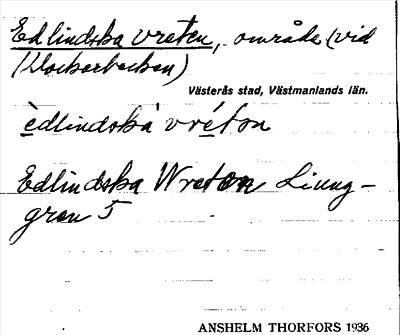 Edlindska vreten, område (vid
Klockarbacken)
Västerås stad, Västmanlands län.
èdlindska vréton
Edlindska Wreton Liung-
gren 5
ANSHELM THORFORS 1936